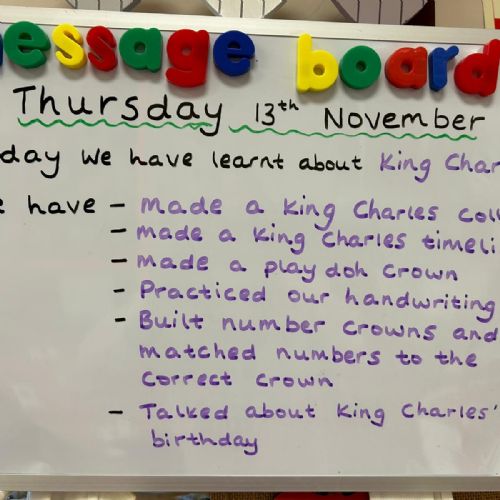 message board
Thursday 13th November
day we have learnt about King Char
have - made a King Charles coll
- made a King Charles timeli
- made a play doh crown
- Practiced our handwriting
- Built number crowns and
matched numbers to the
correct crown
- Talked about King Charles'
birthday